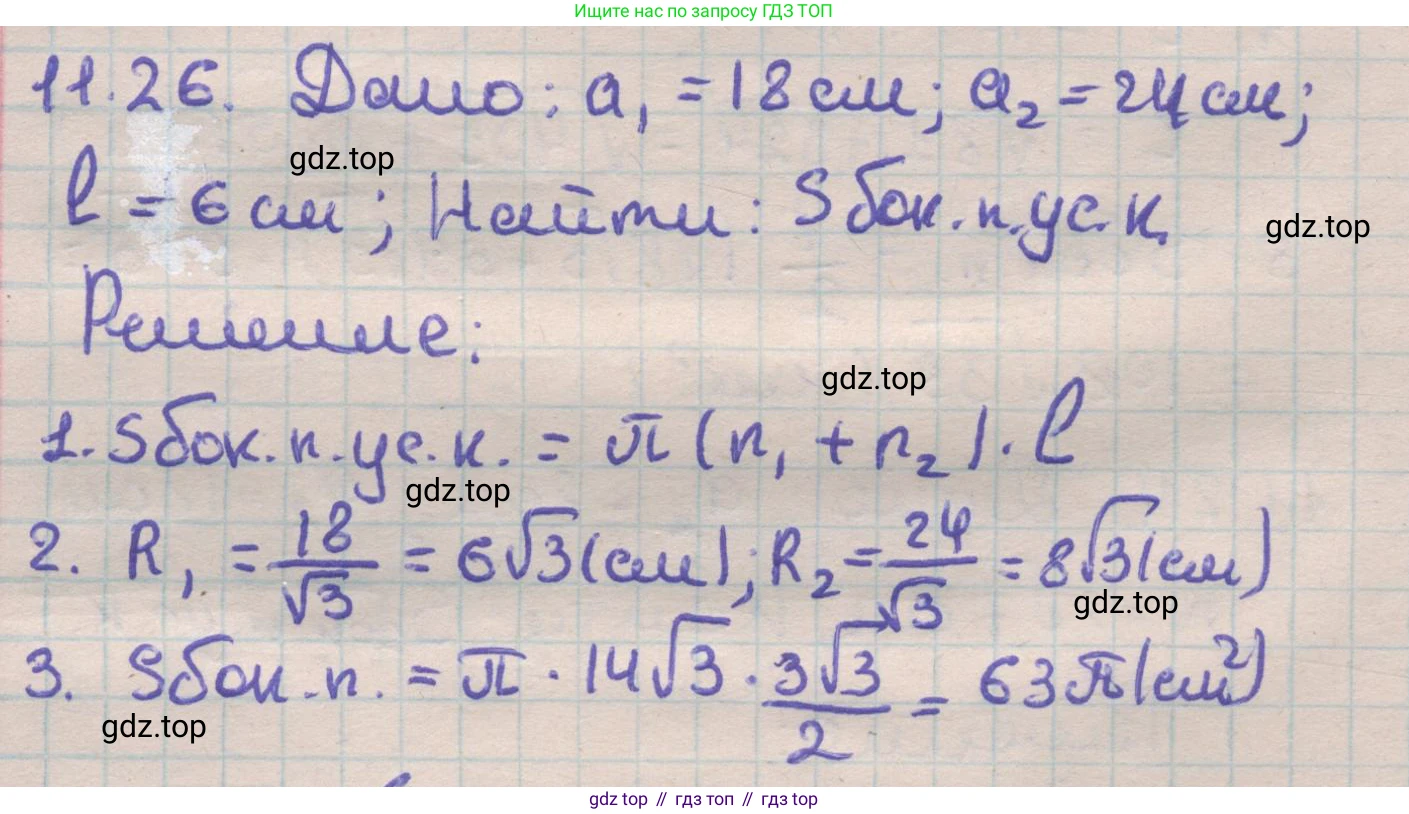 Ищите нас по запросу ГДЗ ТОП
11.26. Дано: a₁ = 18 см; a₂ = 24 см;
gdz.top
l = 6 см; Найти: S бок.п.ус.к.
gdz.top
Решение:
gdz.top
1. S бок.п.ус.к. = π(r₁ + r₂)·l
gdz.top
2. R₁ = 18/√3 = 6√3 (см); R₂ = 24/√3 = 8√3 (см)
gdz.top
3. S бок.п. = π · 14√3 · 3√3/2 = 63π (см²)
gdz.top
gdz top // гдз топ // гдз top